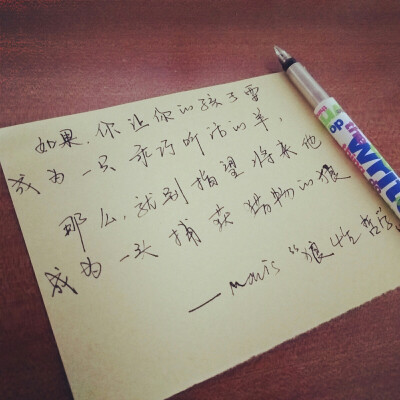 如果，你让你的孩子
成为一只乖巧听话的羊，
那么，就别指望将来他
成为一头捕获猎物的狼
—Mavis "狼性哲学"